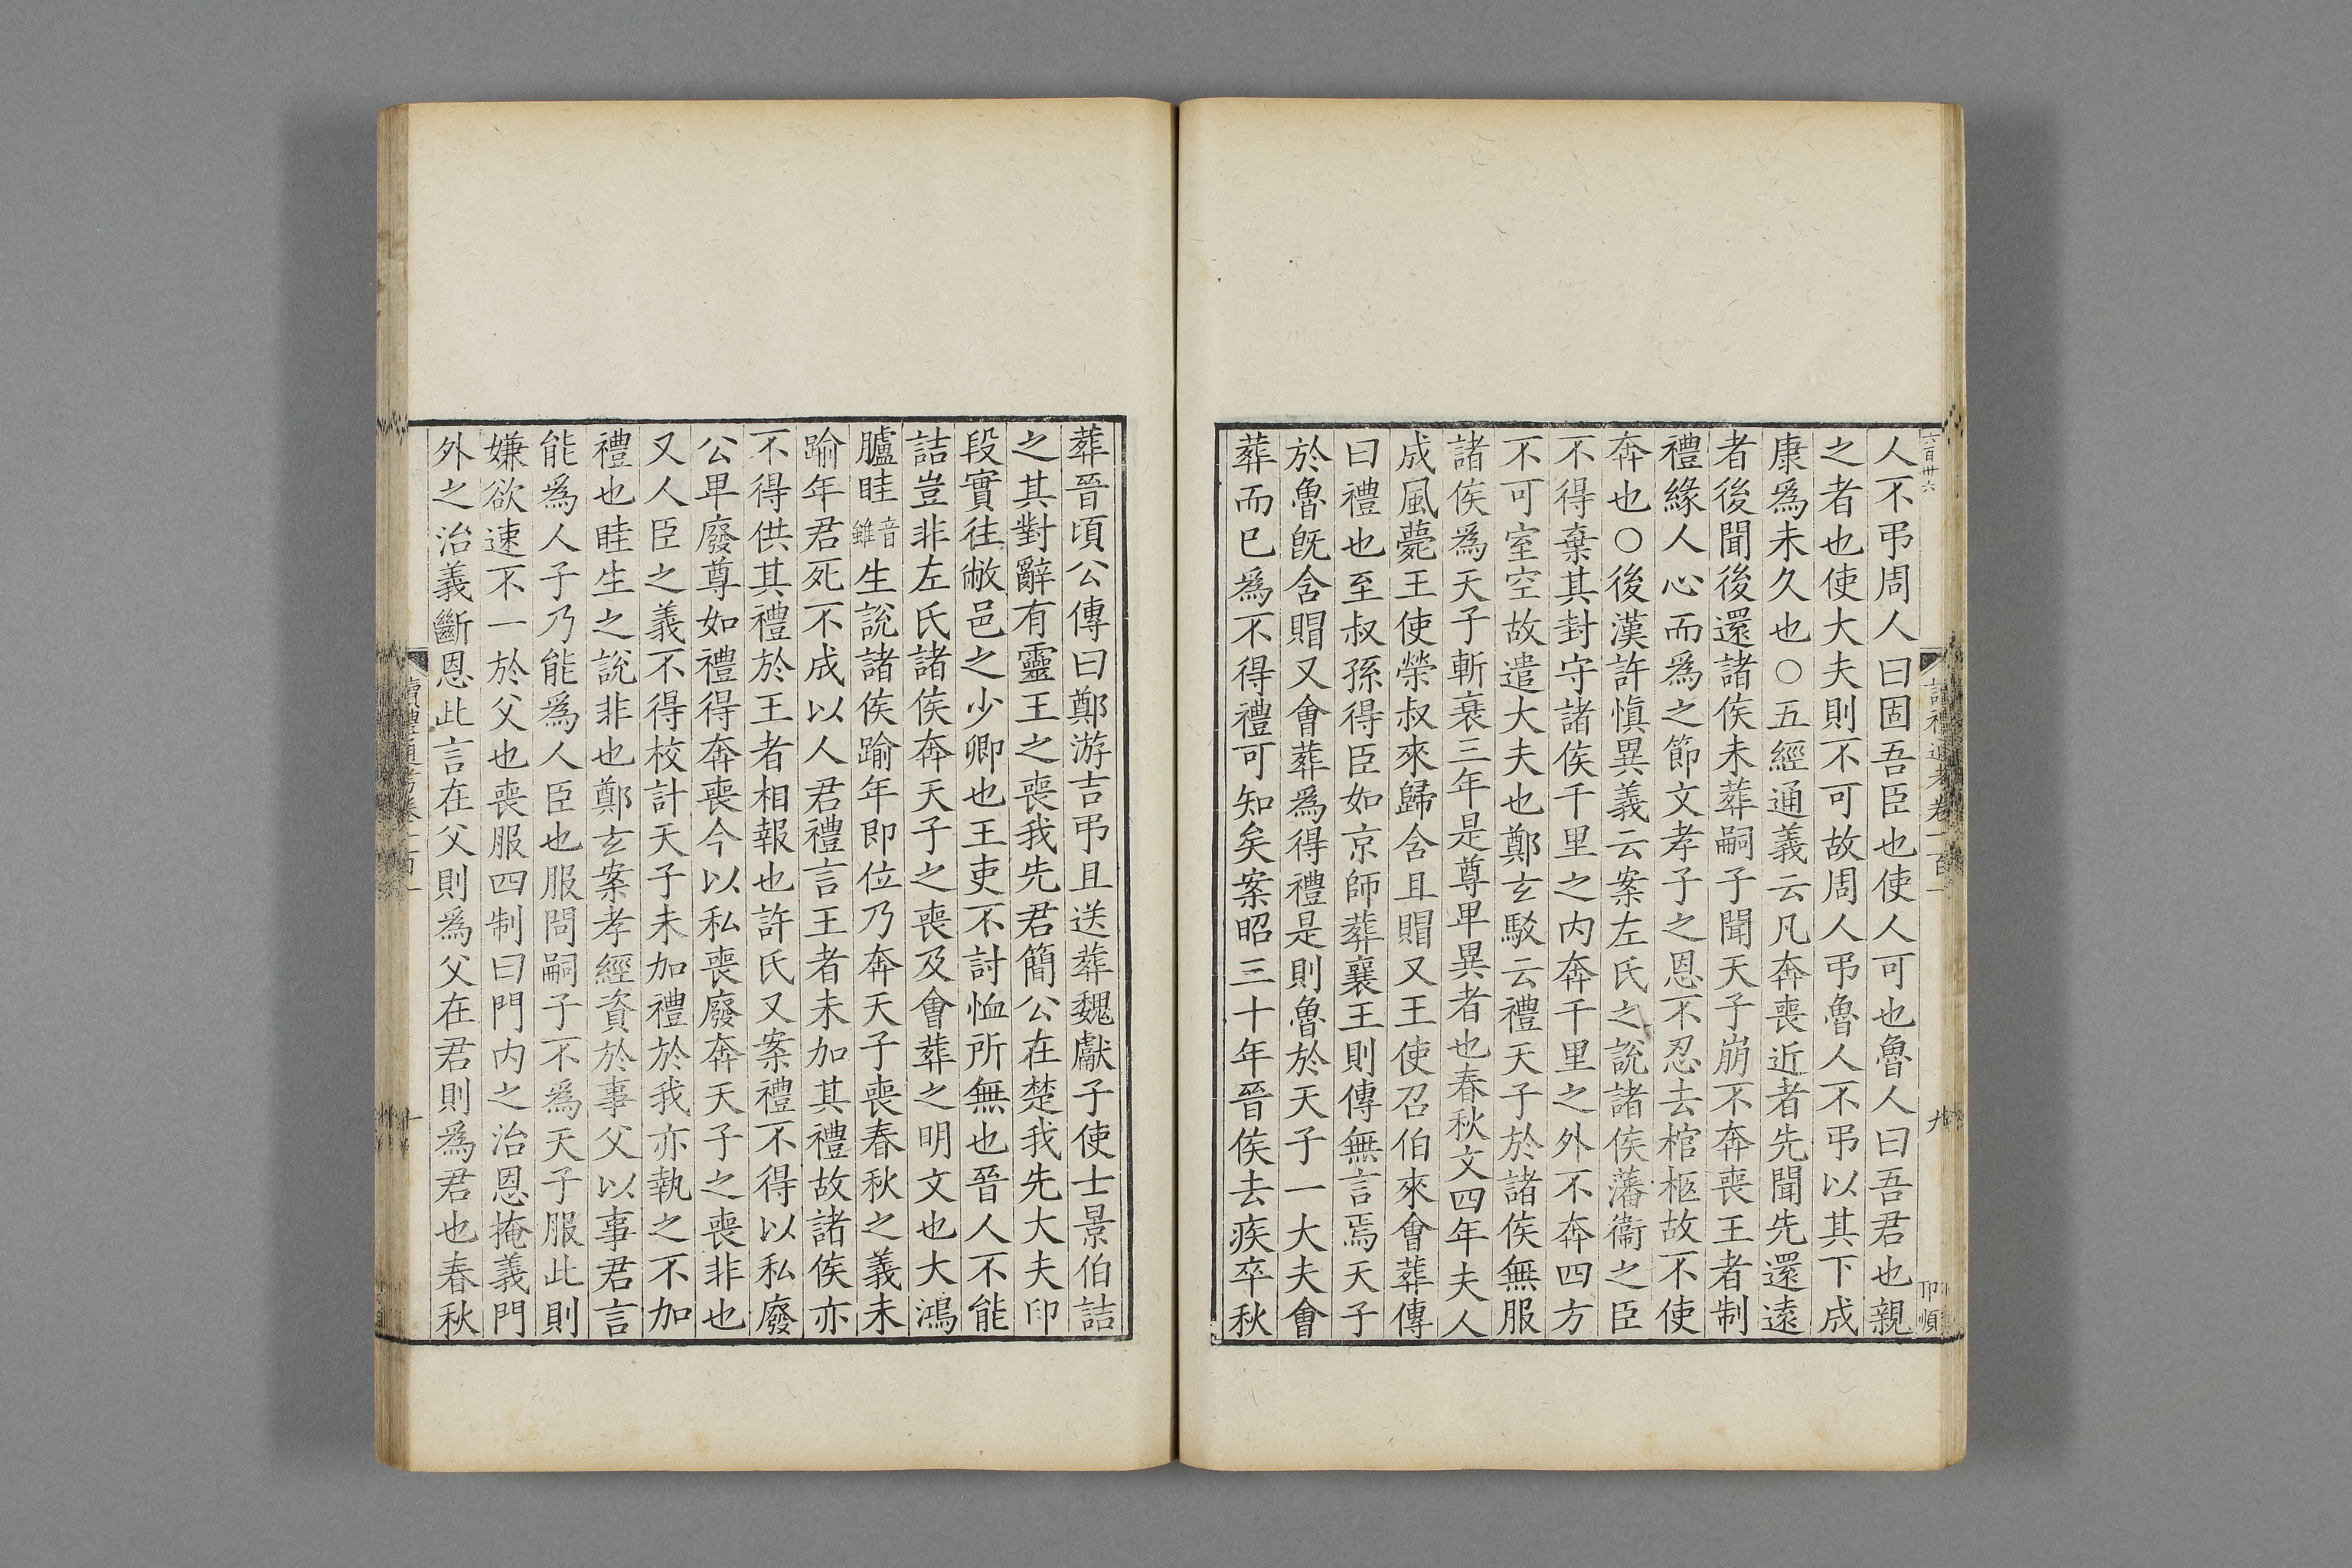 六百卅六
讀禮通考卷一百一
九
人不弔周人曰固吾臣也使人可也魯人曰吾君也親
之者也使大夫則不可故周人弔魯人不弔以其下成
康爲未久也○五經通義云凡奔喪近者先聞先還遠
者後聞後還諸侯未葬嗣子聞天子崩不奔喪王者制
禮緣人心而爲之節文孝子之恩不忍去棺柩故不使
奔也○後漢許慎異義云案左氏之說諸侯藩衞之臣
不得棄其封守諸侯千里之內奔千里之外不奔四方
不可室空故遣大夫也鄭玄駁云禮天子於諸侯無服
諸侯爲天子斬衰三年是尊卑異者也春秋文四年夫人
成風薨王使榮叔來歸含且賵又王使召伯來會葬傳
曰禮也至叔孫得臣如京師葬襄王則傳無言焉天子
於魯旣含賵又會葬爲得禮是則魯於天子一大夫會
葬而已爲不得禮可知矣案昭三十年晉侯去疾卒秋
葬晉頃公傳曰鄭游吉弔且送葬魏獻子使士景伯詰
之其對辭有靈王之喪我先君簡公在楚我先大夫印
段實往敝邑之少卿也王吏不討恤所無也晉人不能
詰豈非左氏諸侯奔天子之喪及會葬之明文也大鴻
臚眭音雖生說諸侯踰年即位乃奔天子喪春秋之義未
踰年君死不成以人君禮言王者未加其禮故諸侯亦
不得供其禮於王者相報也許氏又案禮不得以私廢
公卑廢尊如禮得奔喪今以私喪廢奔天子之喪非也
又人臣之義不得校計天子未加禮於我亦執之不加
禮也眭生之說非也鄭玄案孝經資於事父以事君言
能爲人子乃能爲人臣也服問嗣子不爲天子服此則
嫌欲速不一於父也喪服四制曰門內之治恩掩義門
外之治義斷恩此言在父則爲父在君則爲君也春秋
讀禮通考卷一百一
十